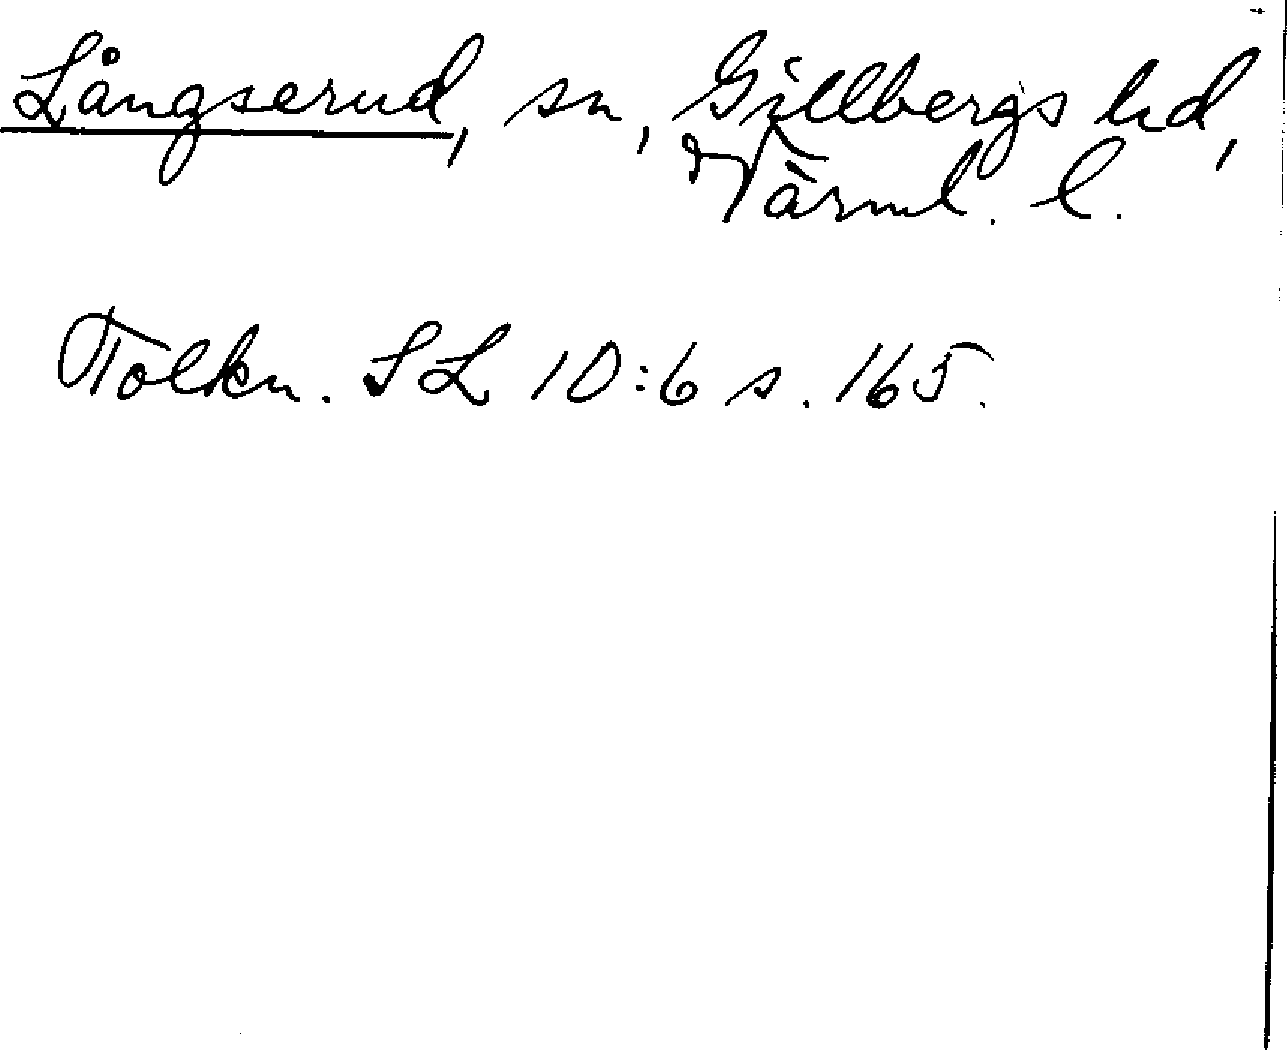 Långserud, sn, Gillbergs hd,
Värml. l.
Tolkn. SL 10:6 s. 165.